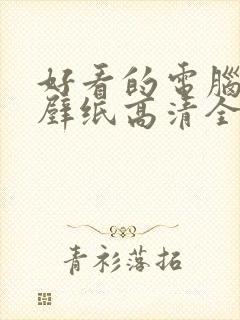 好看的電腦
壁纸高清全
青衫落拓